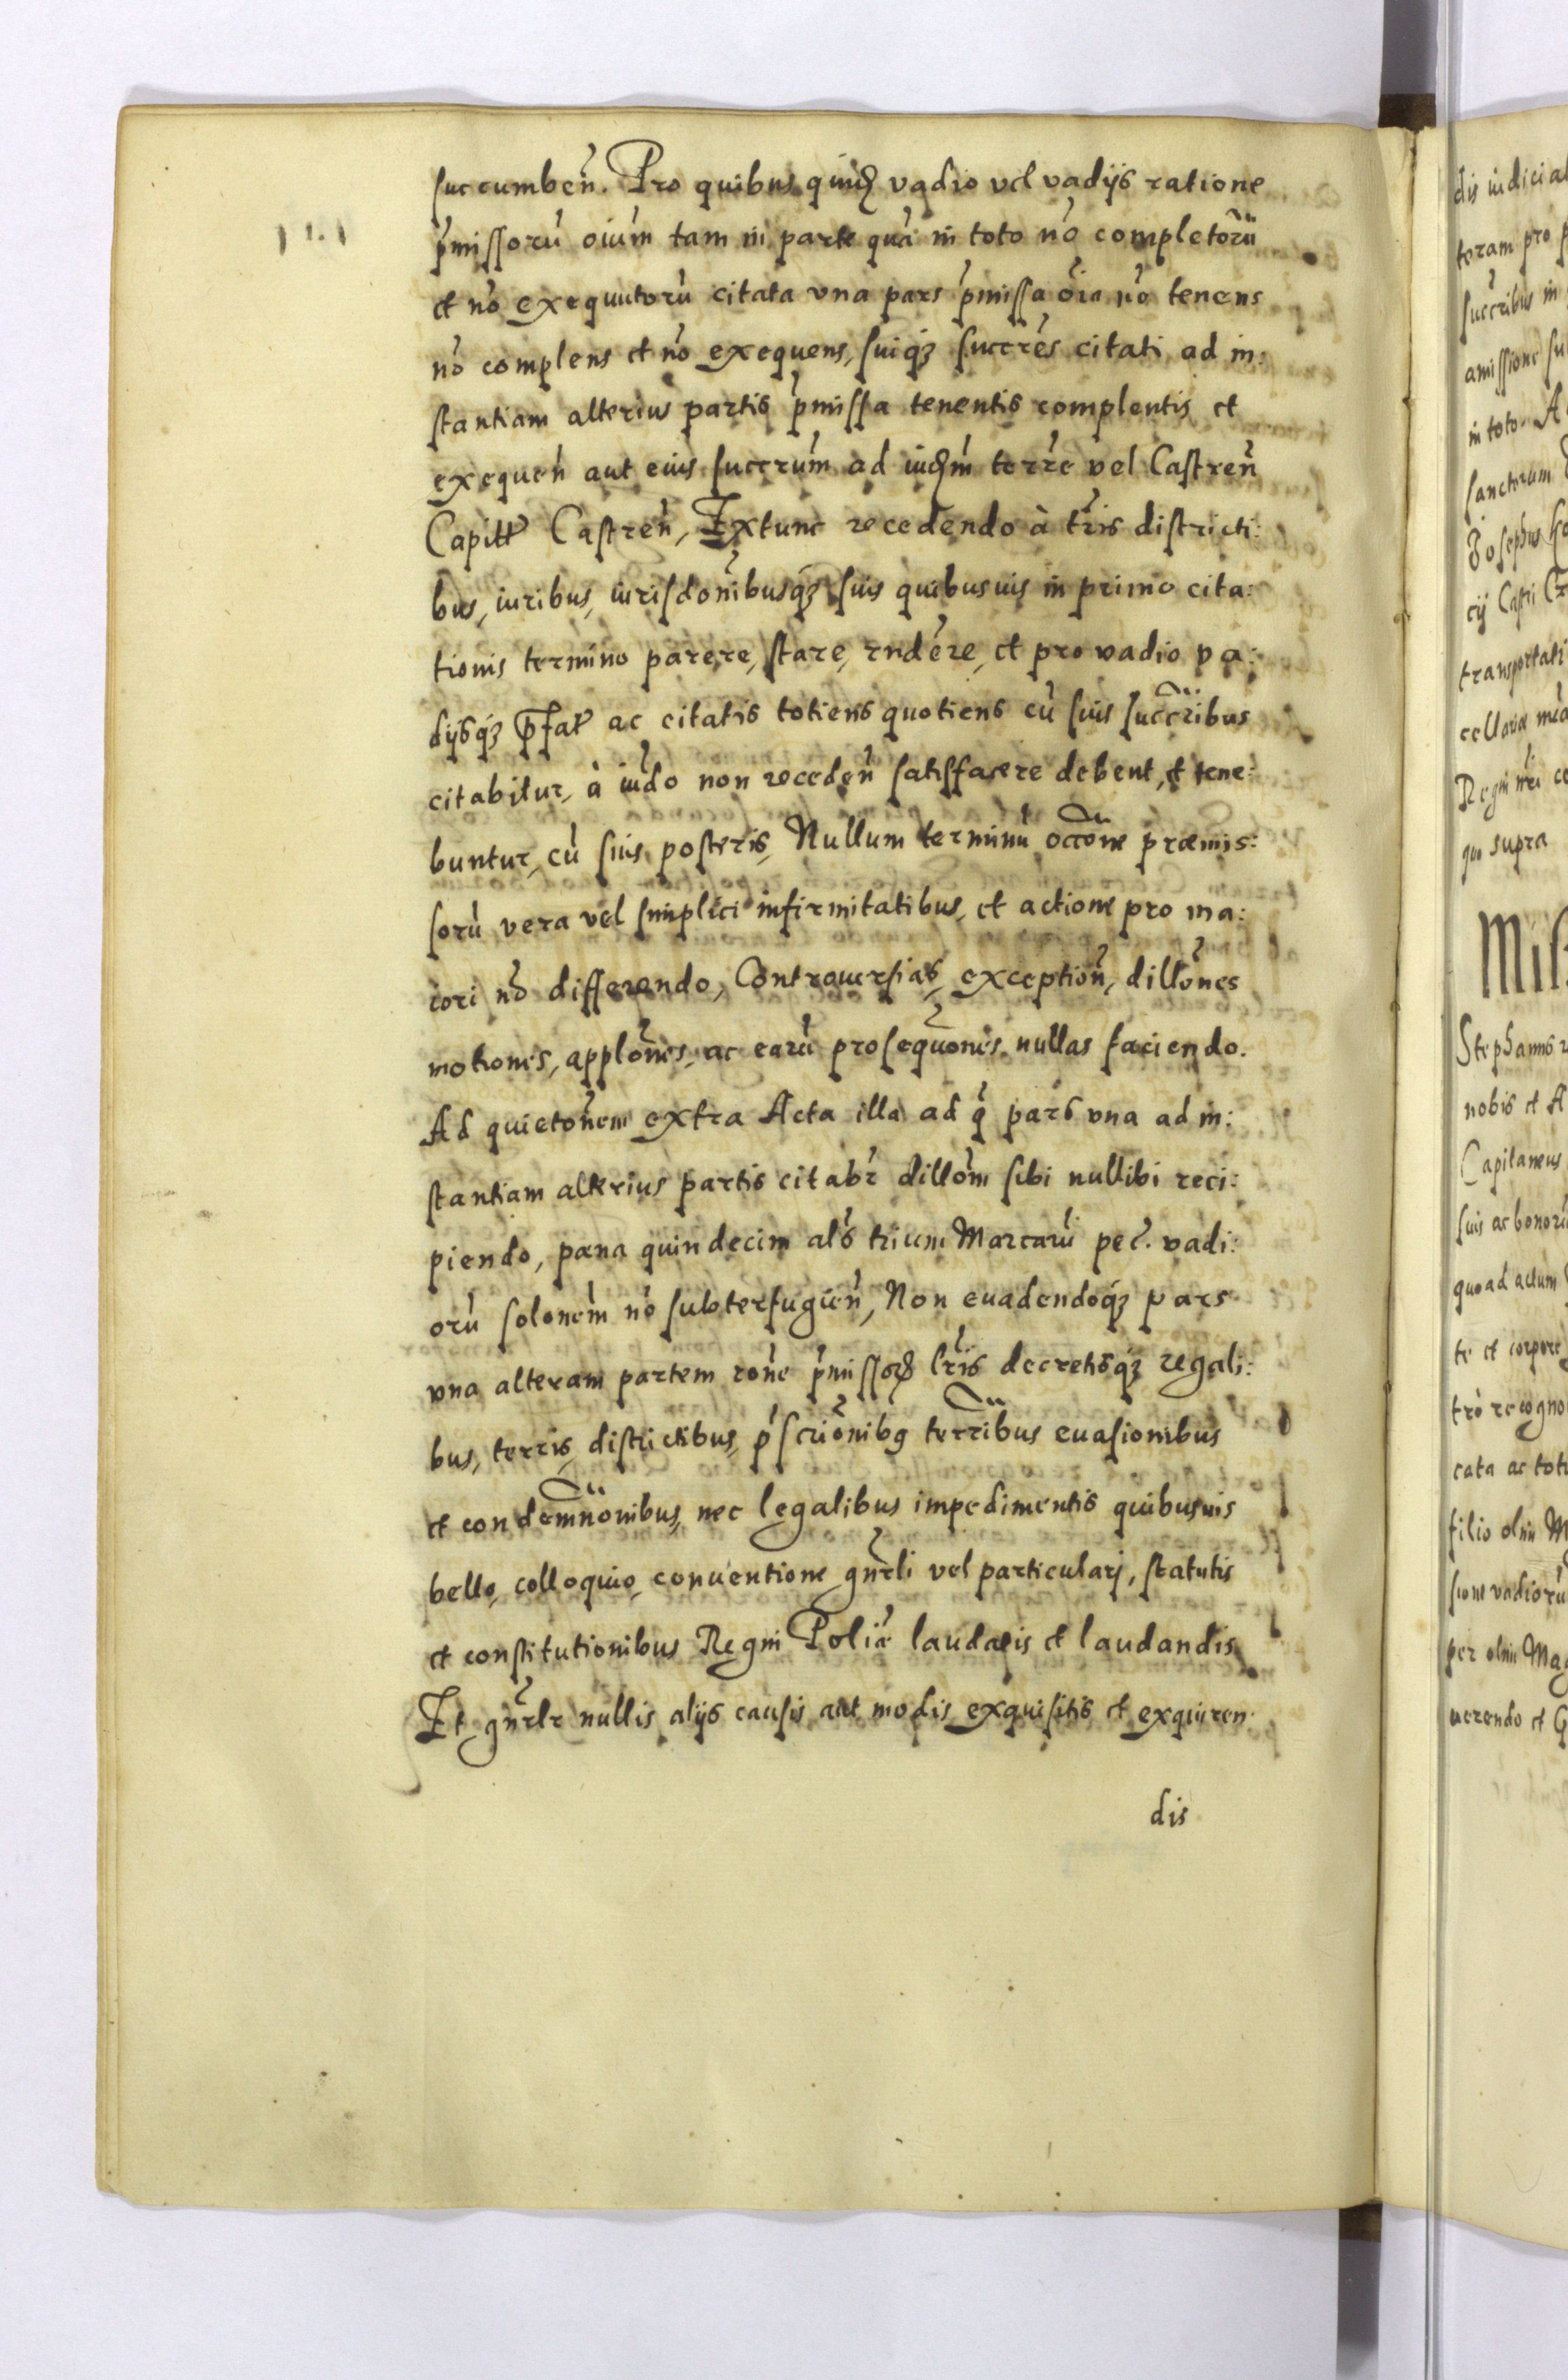 succumbeñ. Pro quibus quidẽ vadio vel vadijs ratione
p̃missorũ oiũm tam in parte quã in toto nõ completorũ
et nõ exequutorũ citata vna pars p̃missa oĩa nõ tenens
nõ complens et nõ exequens, suiq́ꝫ succr̃es citati ad in:
stantiam alterius partis p̃missa tenentis complentis et
exequeñ aut eius succrũm ad iud̃m terr̃e vel Castreñ
Capitt̃ Castreñ, Extunc recedendo à tr̃is districti:
bus, iuribus, iurisdoñibusq́ꝫ suis quibusuis in primo cita:
tionis termino parere, stare, rndẽre, et pro vadio va:
dijsq́ꝫ p̃fat̃ ac citatis totiens quotiens cũ suis succr̃ibus
citabitur, à iud̃o non recedeñ satisfacere debent, et tene:
buntur, cũ suis posteris, Nullum terminũ occõne præmis:
sorũ vera vel simplici infirmitatibus, et actione pro ma:
iori nõ differendo, Controuersias, exceptioñ, dillõnes
motiones, applõnes, ac earũ prosequõnes nullas faciendo.
Ad quietõnem extra Acta illa ad q̃ pars vna ad in:
stantiam alterius partis citabr̃ dillõm sibi nullibi reci:
piendo, pæna quindecim als̃ trium Marcarũ pec̃. vadi:
orũ solonẽm nõ subterfugieñ, Non euadendoq́ꝫ pars
vna alteram partem rõne p̃missoꝝ lr̃is decretisq́ꝫ regali:
bus, terris, districtibus, p̃scriõnibꝫ terr̃ibus euasionibus
et condemnõnibus, nec legalibus impedimentis quibusuis
bello, colloquio, conuentione gñrli vel particularj, statutis
et constitutionibus Regni Poliæ̃ laudatis et laudandis
Et gñrlr nullis alijs causis aut modis exquisitis et exquiren
dis
dis iudicial
toram pro
succribus in
amissione su
in toto. A
sanctorum
Josephus
cij Castri
transportati
cellariæ
Regni nr̃i
quo supra
Stephanus
nobis et A
Capitaneus
suis ac bonorũ
quoad actum
te et corpore
trò recogno
cata ac toti
filio olim M
sione vadiorũ
per olim Mag
uerendo et G